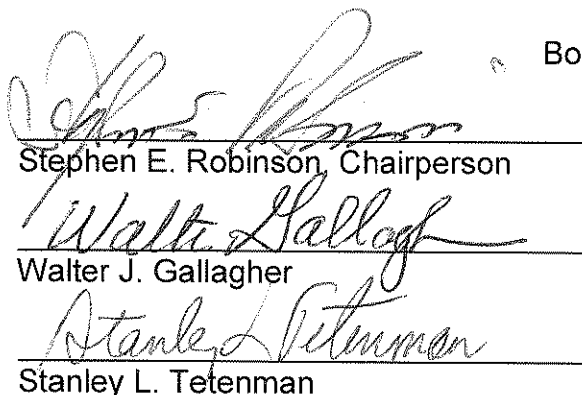 Bo
Stephen Robinson
Stephen E. Robinson, Chairperson
Walter Gallagh
Walter J. Gallagher
Stanley L Tetenman
Stanley L. Tetenman